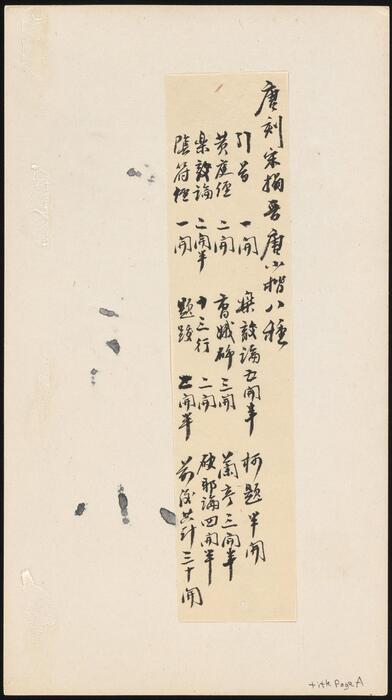 唐刻宋搨晋唐小楷八種
引首 一開 樂毅論五開半 柯題半開
黄庭經 二開 曹娥碑 三開 蘭亭三開半
樂毅論 二開半 十三行 二開 破邪論四開半
陰符經 一開 題跋 開半 前後共計三十開
title page A